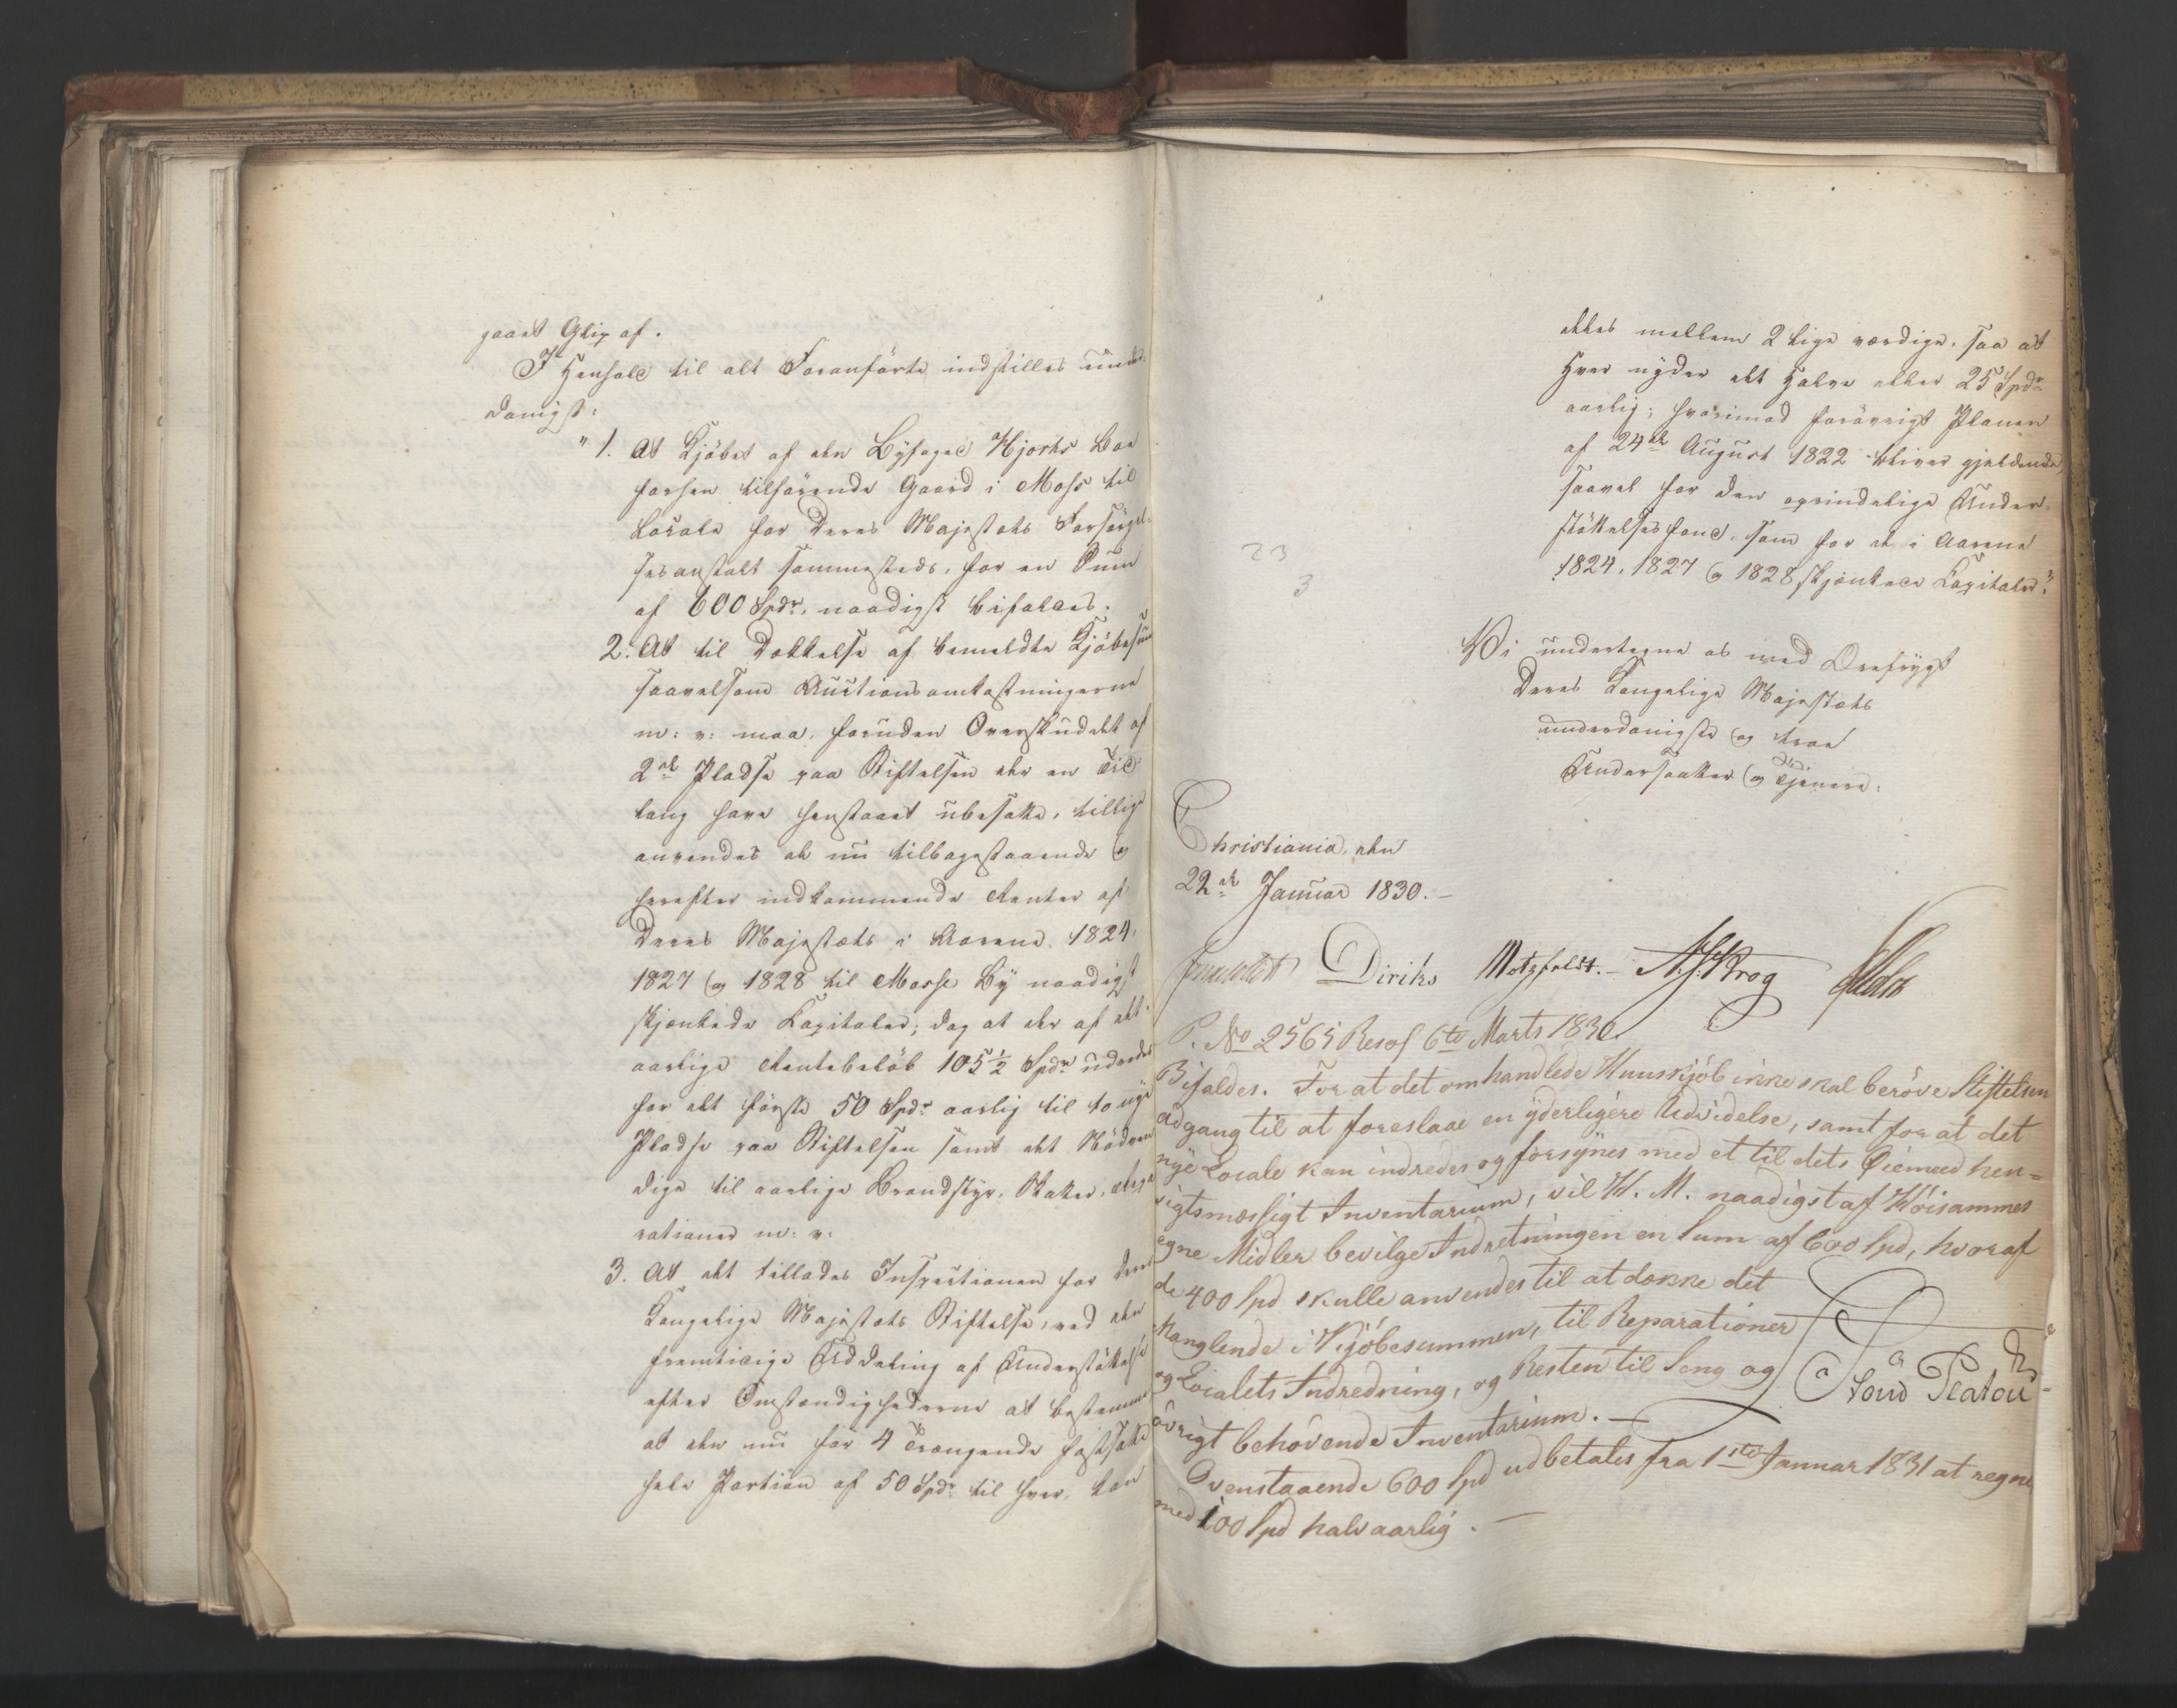 gaaet Glip af.
I Henhold til alt Foranførte indstilles under-
danigst:
" 1. At Kjøbet af den Byfoged Hjorths Boe
forhen tilhørende Gaard i Moss til
Locale for Deres Majestæts Forsørgel-
sesanstalt sammesteds, for en Sum
af 600 Spdr, naadigst bifaldes.
2. At til Dækkelse af bemeldte Kjøbesum
saavelsom Auctionsomkostningerne
m: v: maa, foruden Overskudet af
2de Pladse paa Stiftelsen der en Tid
lang have henstaaet ubesatte, tillige
anvendes de nu tilbagestaaende og
herefter indkommende Renter af
Deres Majestæts i Aarene 1824,
1827 og 1828 til Mosse By naadigst
skjænkede Kapitaler; dog at der af det
aarlige Rentebeløb 105½ Spdr udredes
for det første 50 Spdr aarlig til to nye
Pladse paa Stiftelsen samt det Nødven
dige til aarlige Brandstyr, Skatter, Repa
rationer m: v:
3. At det tillades Inspectionen for Deres
Kongelige Majestæts Stiftelse, ved den
fremtidige Uddeling af Understøttelse
efter Omstændighederne at bestemme
at den nu for 4 Trængende fastsatte
hele Portion af 50 Spdr til hver, kan
deles mellem 2 lige værdige, saa at
Hver nyder det Halve eller 25 Spdr
aarlig; hvorimod forøvrigt Planen
af 24de August 1822 bliver gjeldende
saavel for den oprindelige Under-
støttelsesfond, som for de i Aarene
1824, 1827 og 1828 skjænkede Kapitaler."
23
3
Vi undertegne os med Ærefrygt
Deres Kongelige Majestæts
underdanigste og troe
Undersaatter og Tjenere.
Christiania, den
22de Januar 1830.-
Diriks Motzfeldt.- Krog
P. No 2565 Resol 6te Marts 1830
Bifaldes. For at det omhandlede Huuskjøb ikke skal berøve Stiftelsen
adgang til at foreslaae en yderligere Udvidelse, samt for at det
nye Locale kan indredes og forsynes med et til dets Øiemed hen-
sigtsmæssigt Inventarium, vil H. M. naadigst af Høisammes
egne Midler bevilge Indretningen en Sum af 600 Spd, hvoraf
de 400 Spd skulle anvendes til at dække det
Manglende i Kjøbesummen, til Reparationer
og Localets Indredning, og Resten til Seng og
øvrigt behøvende Inventarium.-
Stoud Platou
Ovenstaaende 600 Spd udbetales fra 1ste Januar 1831 at regne
med 100 Spd halvaarlig.-